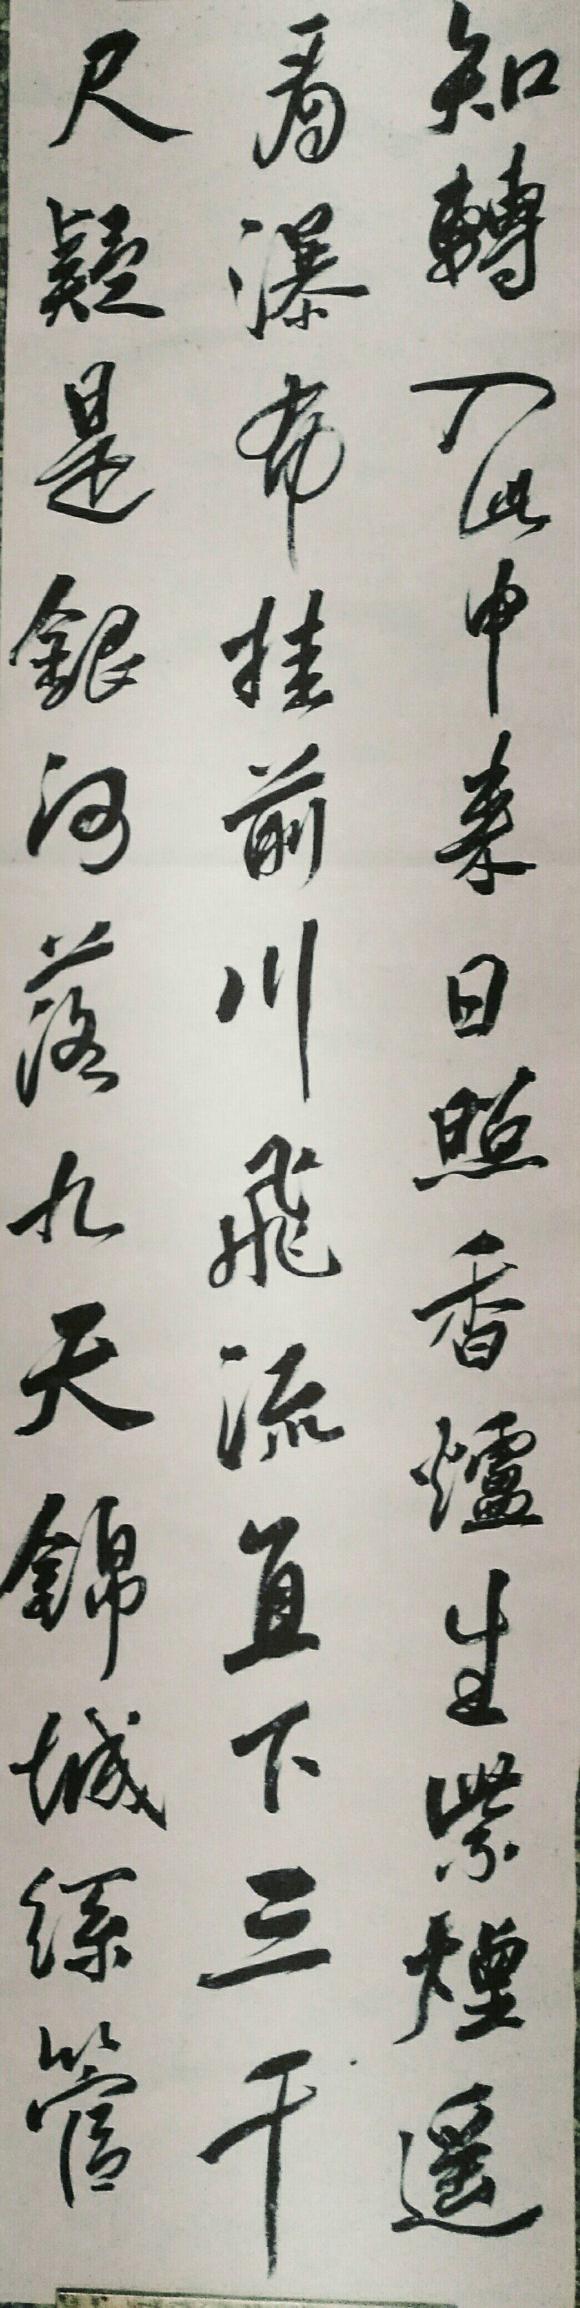 知轉入此中来日照香爐生紫煙遥
看瀑布挂前川飛流直下三千
尺疑是銀河落九天錦城絲管